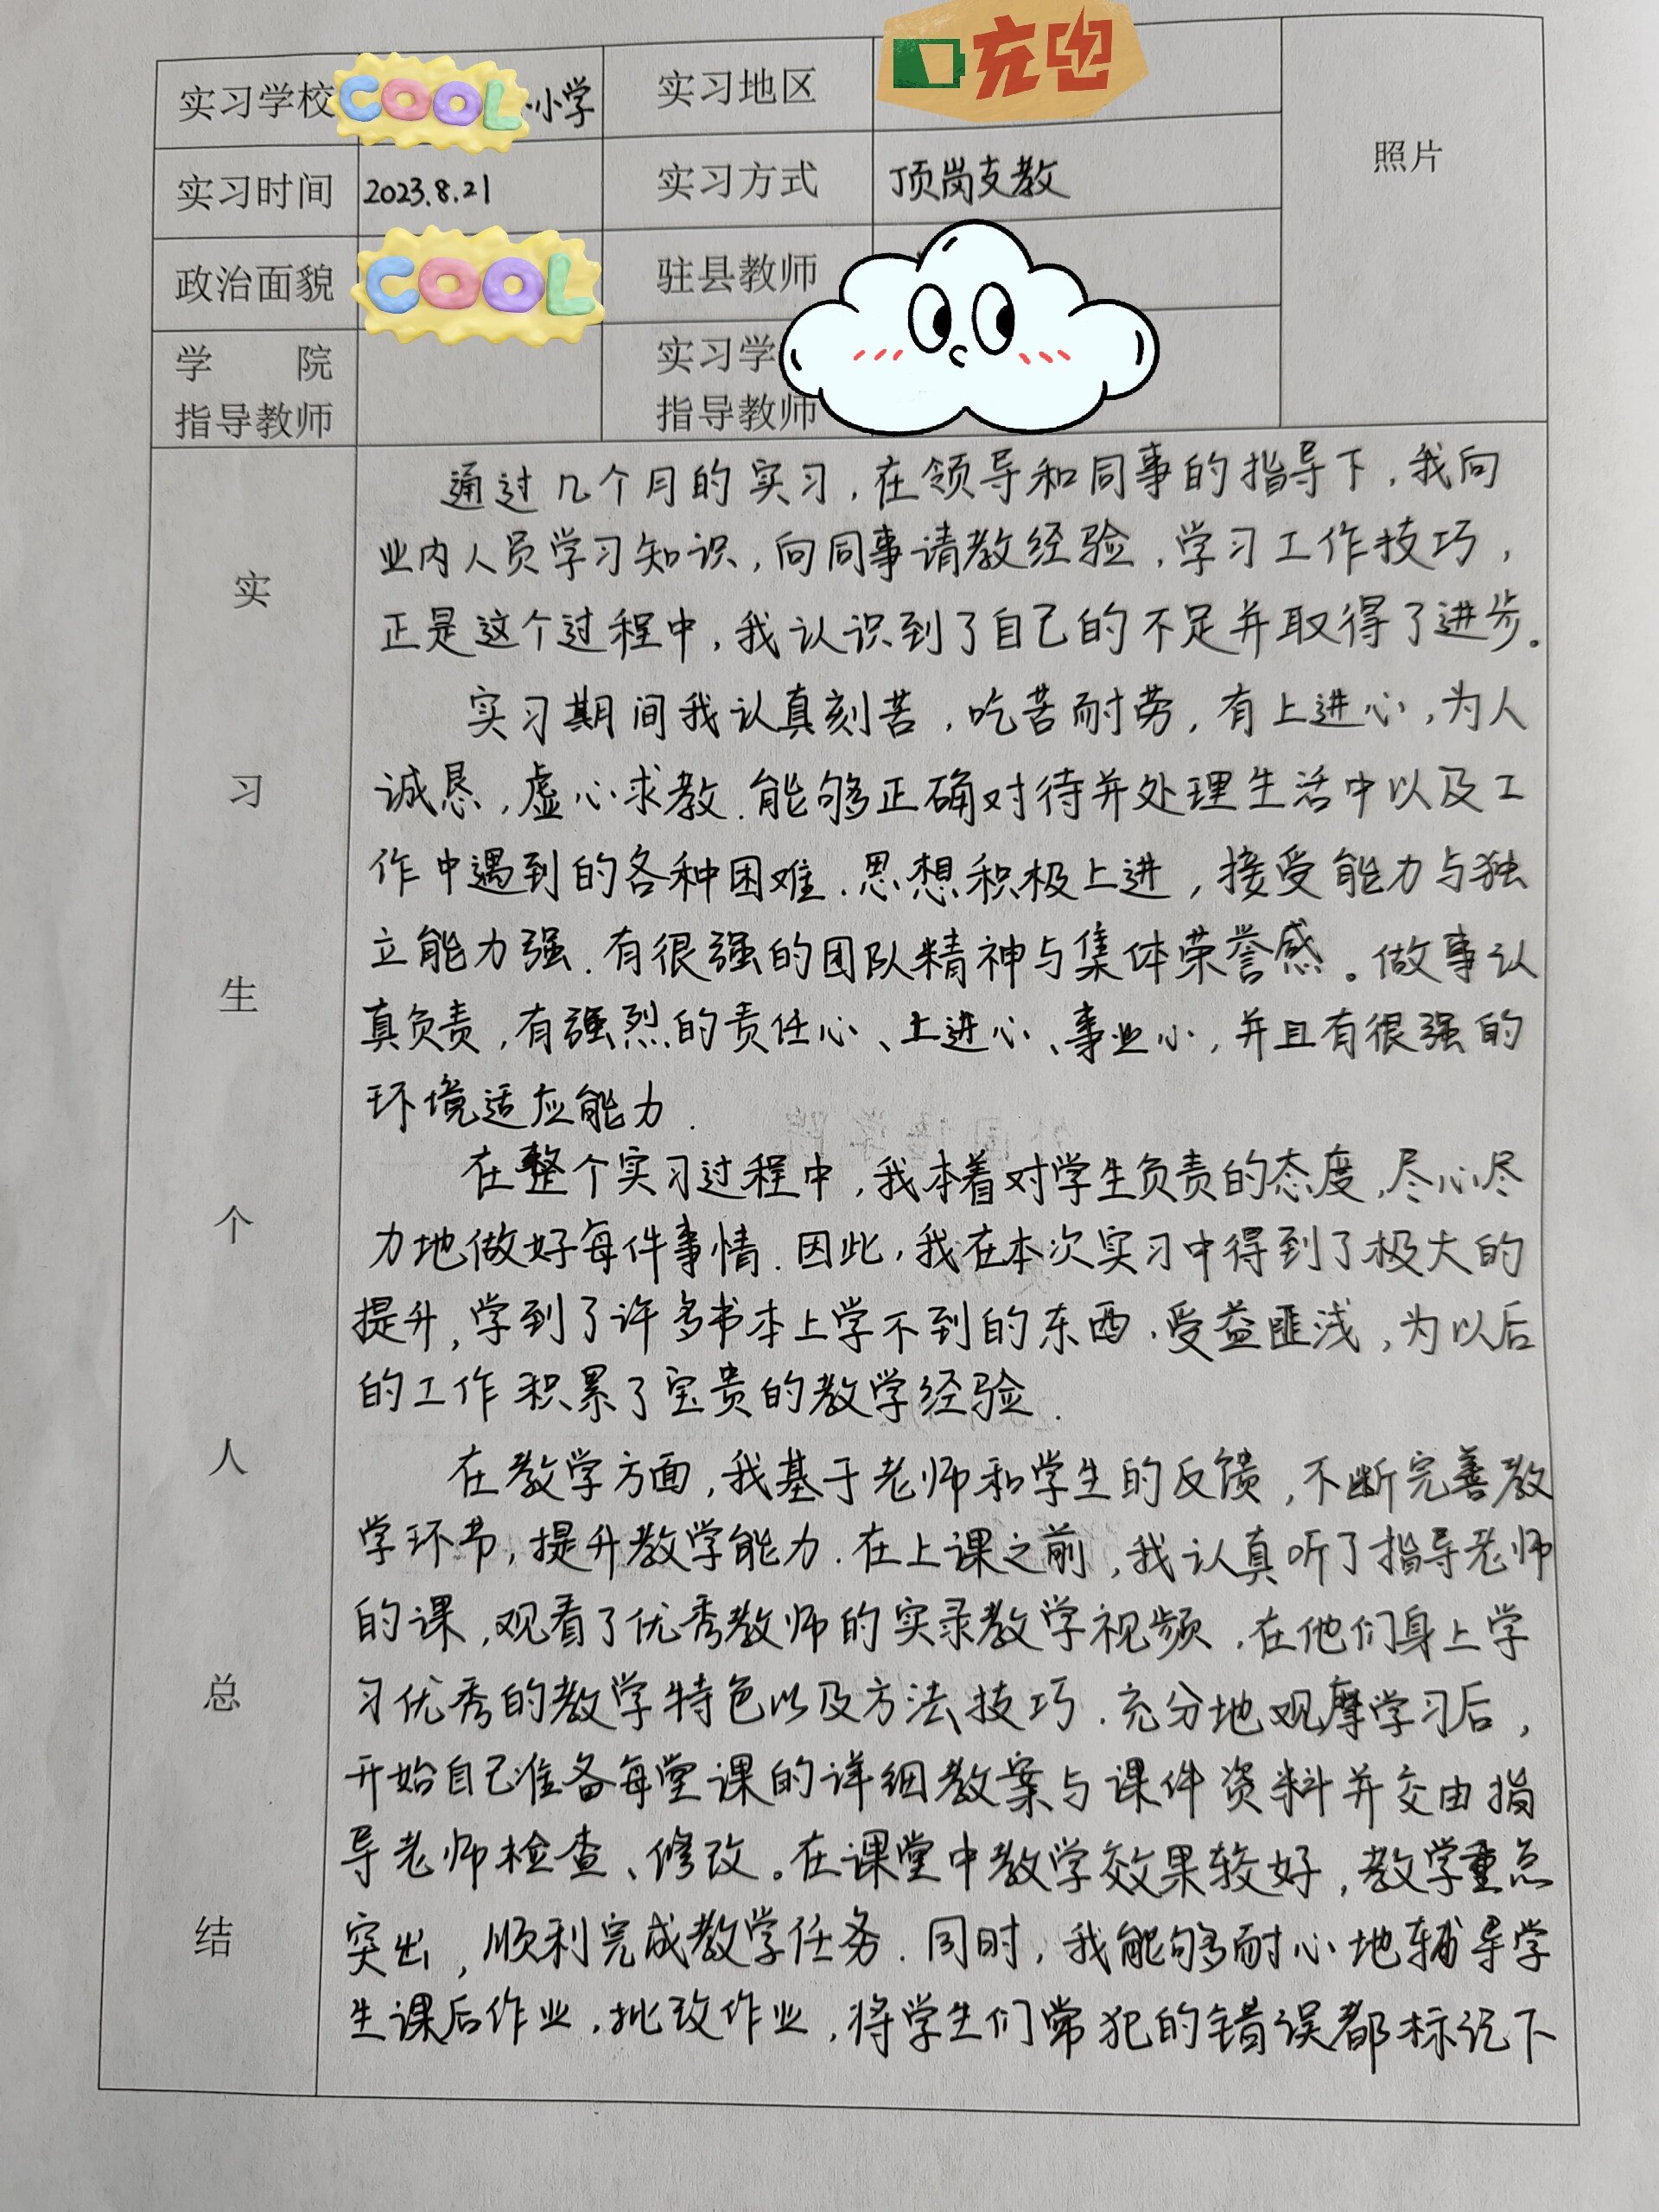 实习学校 COOL 小学 实习地区 充电 照片
实习时间 2023.8.21 实习方式 顶岗支教
政治面貌 COOL 驻县教师
学院 实习学
指导教师 指导教师
实习生个人总结
通过几个月的实习,在领导和同事的指导下,我向
业内人员学习知识,向同事请教经验,学习工作技巧,
正是这个过程中,我认识到了自己的不足并取得了进步。
实习期间我认真刻苦,吃苦耐劳,有上进心,为人
诚恳,虚心求教.能够正确对待并处理生活中以及工
作中遇到的各种困难.思想积极上进,接受能力与独
立能力强.有很强的团队精神与集体荣誉感。做事认
真负责,有强烈的责任心、上进心、事业小,并且有很强的
环境适应能力.
在整个实习过程中,我本着对学生负责的态度,尽心尽
力地做好每件事情.因此,我在本次实习中得到了极大的
提升,学到了许多书本上学不到的东西.受益匪浅,为以后
的工作积累了宝贵的教学经验.
在教学方面,我基于老师和学生的反馈,不断完善教
学环节,提升教学能力.在上课之前,我认真听了指导老师
的课,观看了优秀教师的实录教学视频,在他们身上学
习优秀的教学特色以及方法技巧.充分地观摩学习后,
开始自己准备每堂课的详细教案与课件资料并交由指
导老师检查、修改。在课堂中教学效果较好,教学重点
突出,顺利完成教学任务.同时,我能够耐心地辅导学
生课后作业,批改作业,将学生们常犯的错误都标记下